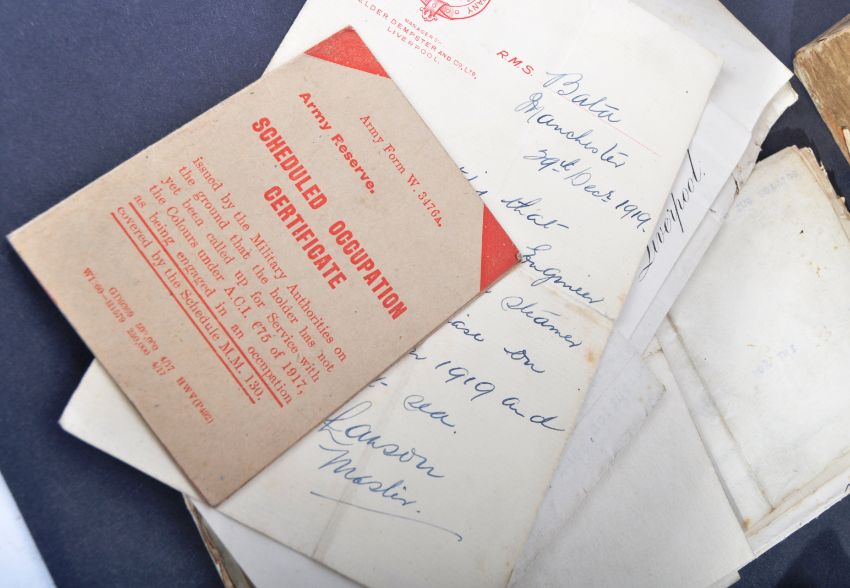 Army Form W. 3476A.
Army Reserve.
SCHEDULED OCCUPATION
CERTIFICATE
issued by the Military Authorities on
the ground that the holder has not
yet been called up for Service with
the Colours under A.C.I. 675 of 1917,
as being engaged in an occupation
covered by the Schedule M.M. 130.
250,000 4/17 HWV(P492)
250,000 4/17
MANAGERS
ELDER DEMPSTER AND CO. LTD.
LIVERPOOL.
R.M.S. Bata
Manchester
29th Decr 1919.
that
Engineer
steamer
on
1919 and
sea.
Lawson
Master.
Liverpool.